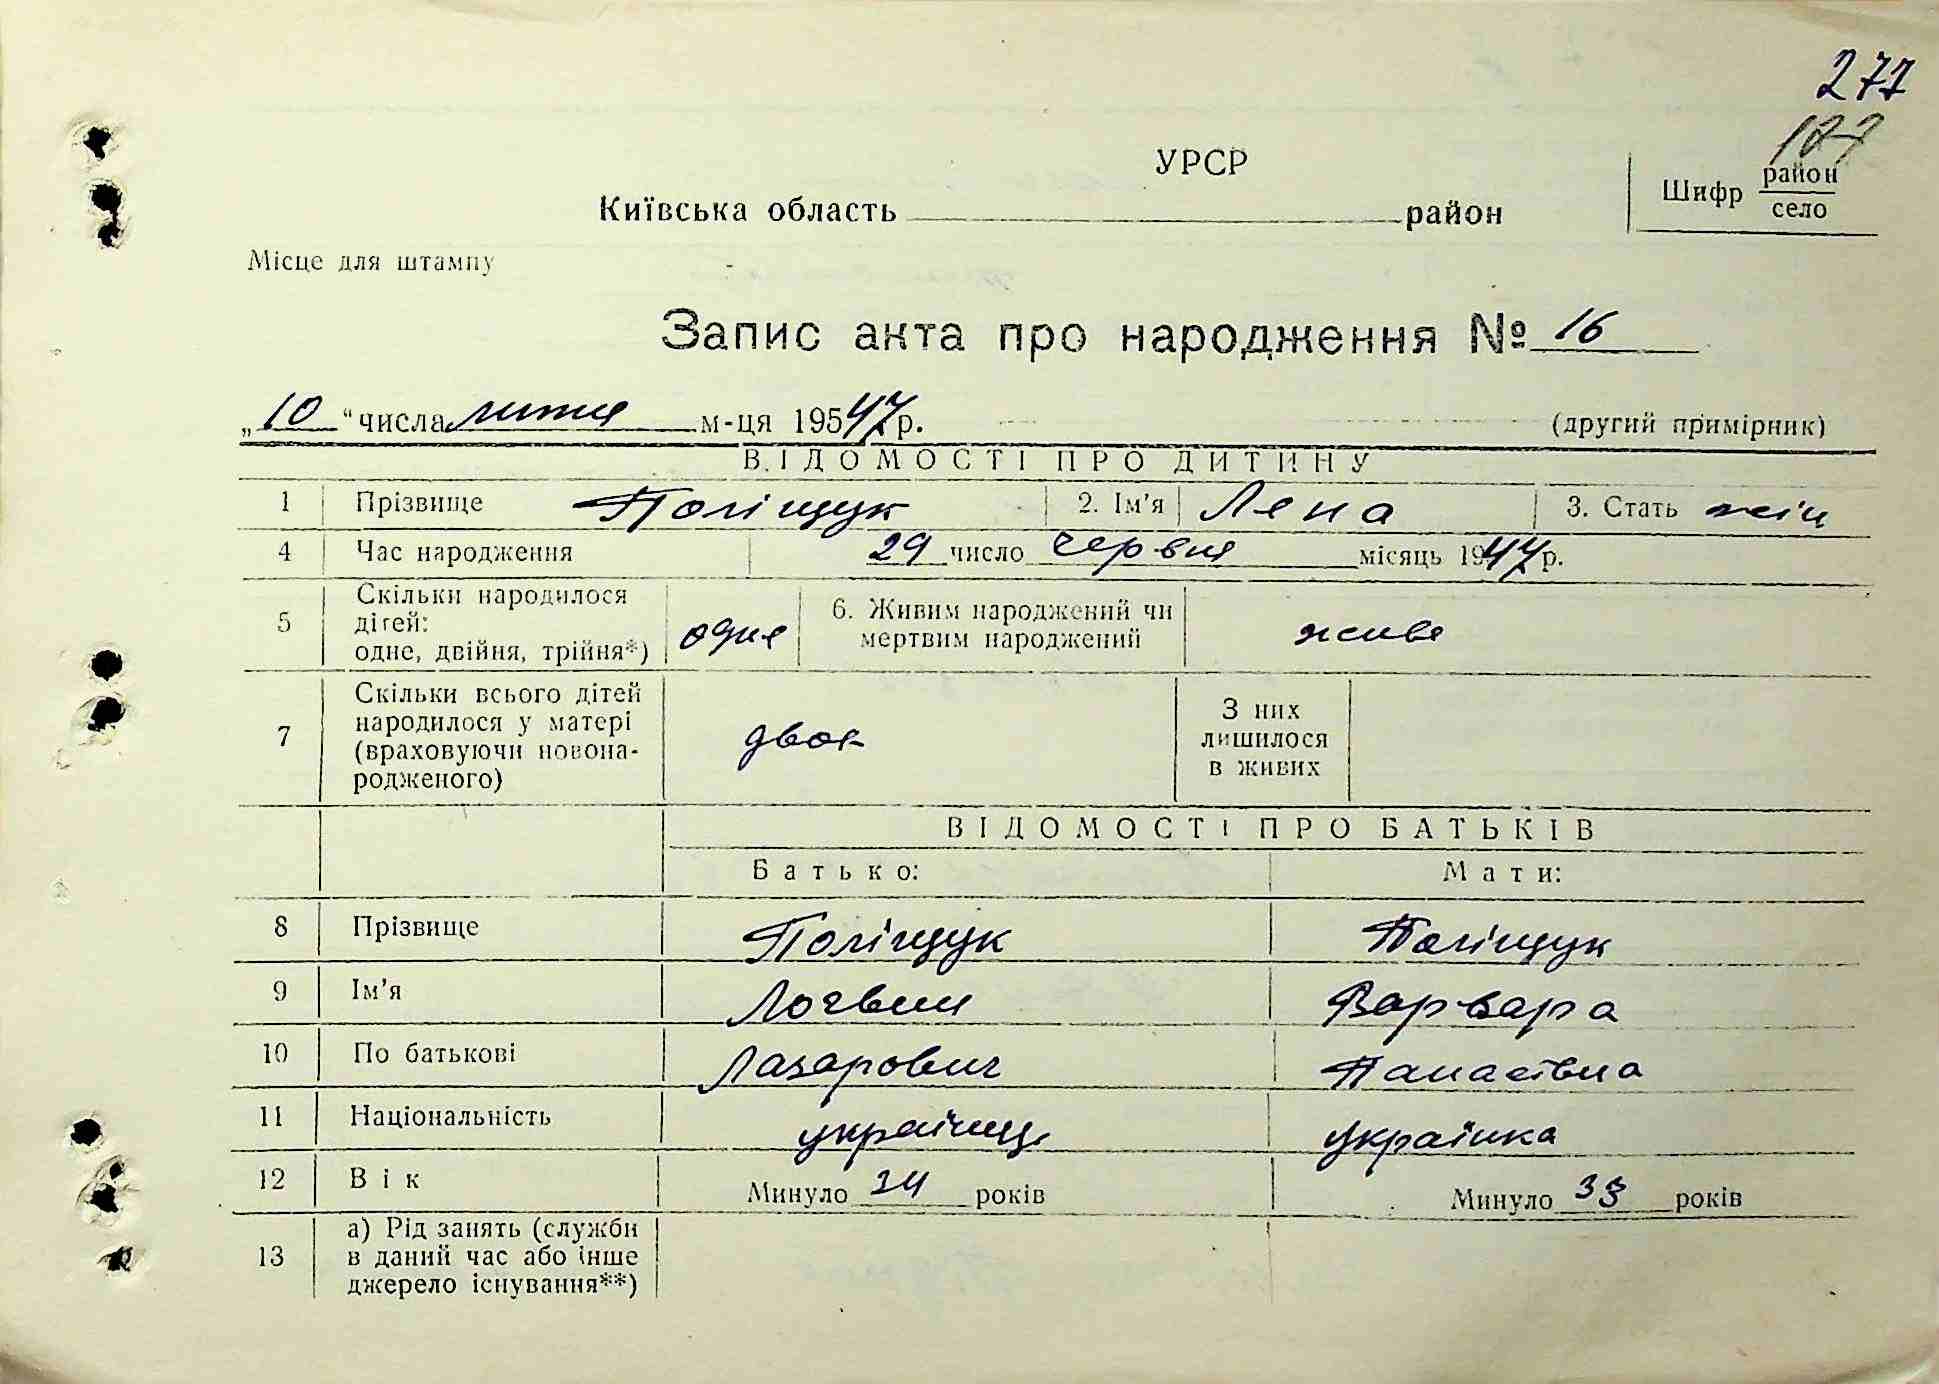 277
177
УРСР
Київська область район
Шифр район
село
Місце для штампу
Запис акта про народження № 16
„10“ числа липня м-ця 195 47 р. (другий примірник)
ВІДОМОСТІ ПРО ДИТИНУ
1 Прізвище Поліщук 2. Ім'я Лена 3. Стать жін
4 Час народження 29 число червня місяць 1947 р.
5 Скільки народилося дітей: одне, двійня, трійня*) одне 6. Живим народжений чи мертвим народжений живе
7 Скільки всього дітей народилося у матері (враховуючи новонародженого) двоє З них лишилося в живих
ВІДОМОСТІ ПРО БАТЬКІВ
Батько: Мати:
8 Прізвище Поліщук Поліщук
9 Ім'я Логвин Варвара
10 По батькові Лазарович Панасівна
11 Національність українець українка
12 Вік Минуло 34 років Минуло 33 років
13 а) Рід занять (служби в даний час або інше джерело існування**)